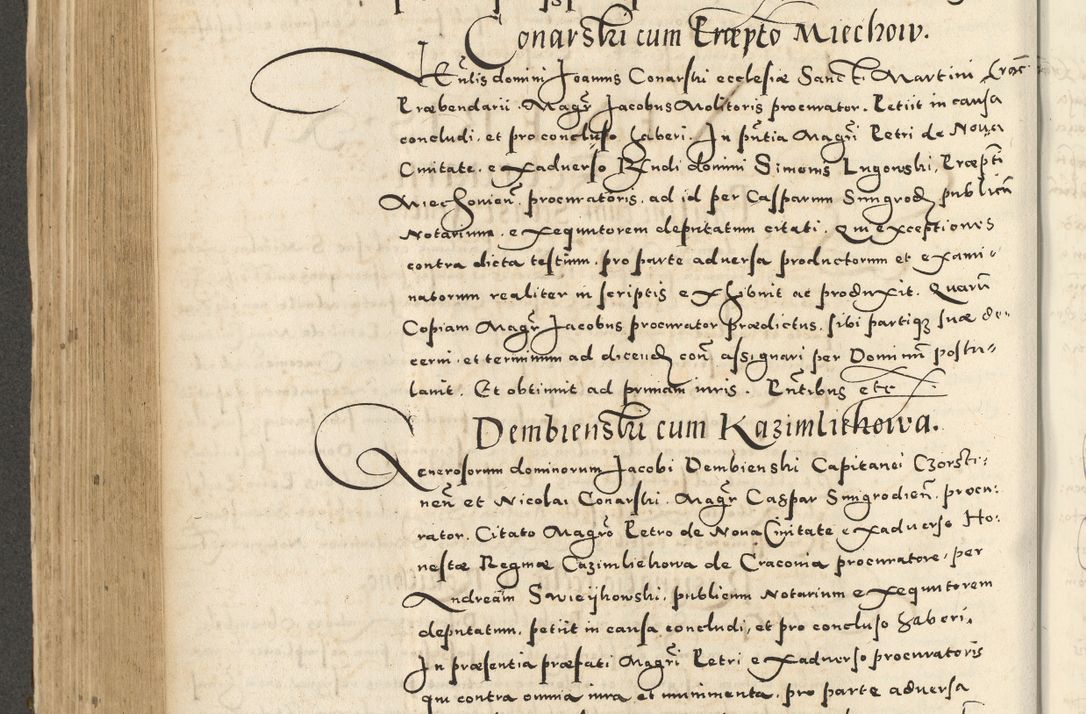 Conarski cum Præpto Miechow.
Vene͂lis domini Joannis Conarski ecclesiæ Sancti Martini Crac:
Præbendarii. Magr̃ Jacobus Molitoris procurator. Petiit in causa
concludi, et pro concluso haberi. In pn͂tia Magr̃i Petri de Noua
Ciuitate, ex aduerso Rn͂di domini Simonis Lugowski, Præpti
Miechouien͂. procuratoris, ad id per Casparum Smigrod, publicũ
Notarium, exequutorem deputatum citati. Qui exceptiones
contra dicta testium, pro parte aduersa productorum et exami-
natorum realiter in scriptis exhibuit ac produxit. Quarũ
Copiam Magr̃ Jacobus procurator prædictus, sibi partiq3 suæ de-
cerni, et terminum ad dicend con͂ assignari per Dominũ postu-
lauit. Et obtinuit ad primam iuris. Pn͂tibus etc
Dembienski cum Kazimlichowa.
Generosorum dominorum Jacobi Dembienski Capitanei Czorsti-
nen͂ et Nicolai Conarski. Magr̃ Caspar Smigrodien͂. procu-
rator. Citato Magr̃o Petro de Noua Ciuitate ex aduerso Ho-
nestæ Reginæ Cazimlichowa de Cracouia procuratore, per
Andream Savieyhowski, publicum Notarium exequutorem
deputatum, petiit in causa concludi, et pro concluso haberi.
In præsentia præfati Magr̃i Petri ex aduerso procuratoris
qui contra omnia iura et munimenta, pro parte aduersa